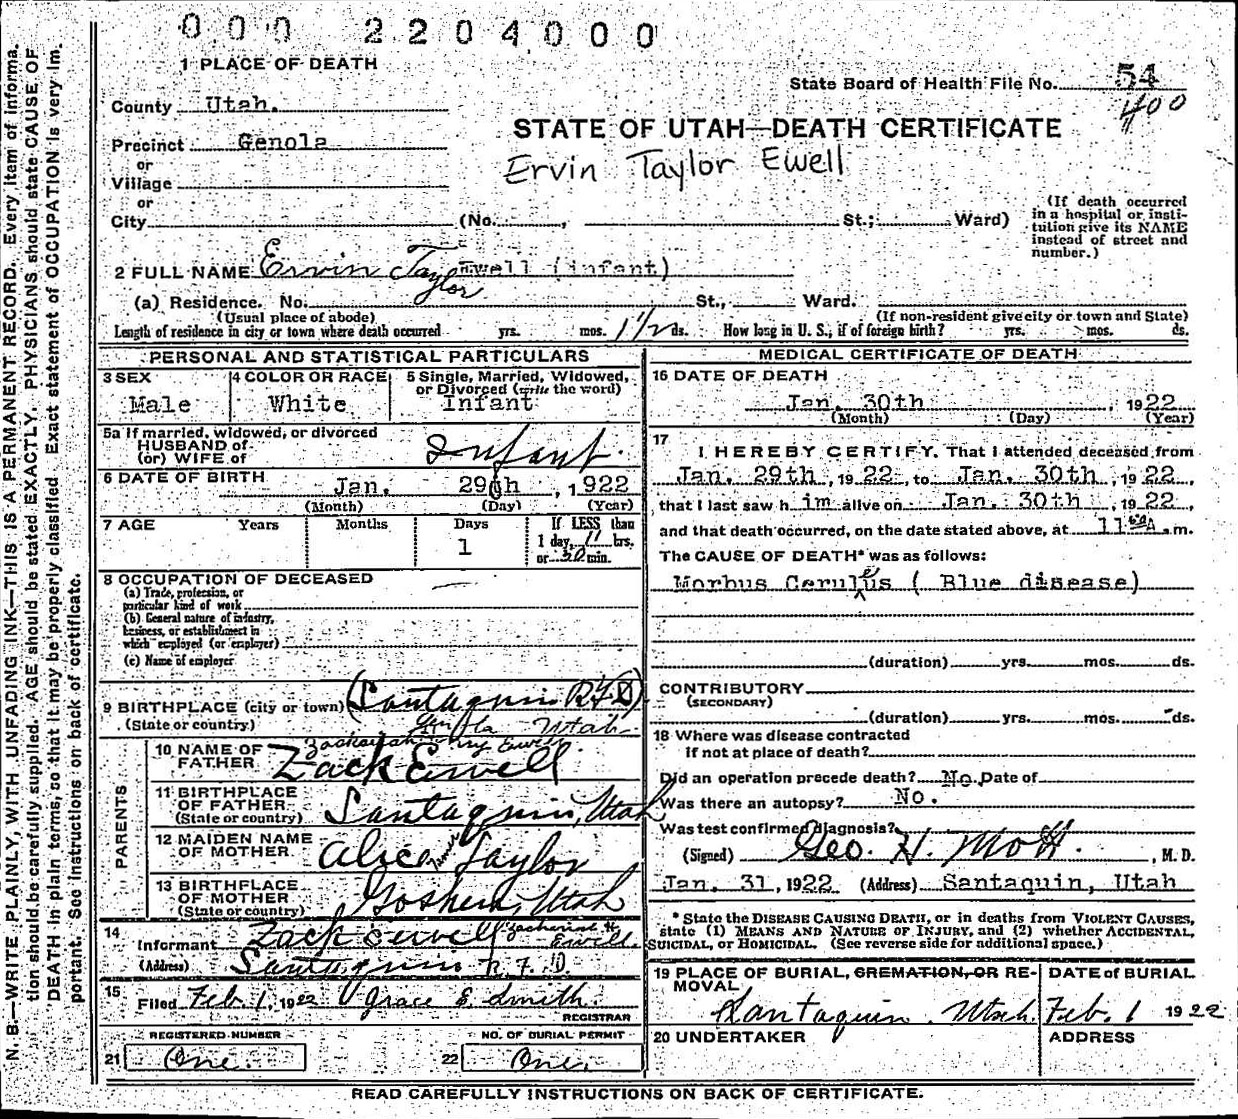 0 0 0 2 2 0 4 0 0 0
1 PLACE OF DEATH
State Board of Health File No. 54
400
County Utah.
STATE OF UTAH—DEATH CERTIFICATE
Precinct Genola
Ervin Taylor Ewell
or
Village
or
City (No. , St.; Ward)
(If death occurred
in a hospital or insti-
tution give its NAME
instead of street and
number.)
2 FULL NAME Ervin Taylor Ewell (infant)
(a) Residence. No. St., Ward.
(Usual place of abode)
(If non-resident give city or town and State)
Length of residence in city or town where death occurred yrs. mos. 1 1/2 ds. How long in U. S., if of foreign birth? yrs. mos. ds.
PERSONAL AND STATISTICAL PARTICULARS
3 SEX
Male
4 COLOR OR RACE
White
5 Single, Married, Widowed,
or Divorced (write the word)
Infant
5a If married, widowed, or divorced
HUSBAND of
(or) WIFE of
Infant.
6 DATE OF BIRTH
Jan. 29th, 1922
(Month) (Day) (Year)
7 AGE Years Months Days
1
If LESS than
1 day, 11 hrs.
or 30 min.
8 OCCUPATION OF DECEASED
(a) Trade, profession, or
particular kind of work
(b) General nature of industry,
business, or establishment in
which employed (or employer)
(c) Name of employer
9 BIRTHPLACE (city or town) (Santaquin RFD)
(State or country) Genola Utah
PARENTS
10 NAME OF
FATHER
Zack Ewell
11 BIRTHPLACE
OF FATHER
(State or country)
Santaquin, Utah
12 MAIDEN NAME
OF MOTHER
Alice Taylor
13 BIRTHPLACE
OF MOTHER
(State or country)
Goshen, Utah
14
Informant Zack Ewell Zachariah H. Ewell.
(Address) Santaquin R.F.D.
15
Filed Feb. 1, 1922 Grace E. Smith.
REGISTRAR
REGISTERED NUMBER
21 One.
NO. OF BURIAL PERMIT
22 One.
MEDICAL CERTIFICATE OF DEATH
16 DATE OF DEATH
Jan. 30th, 1922
(Month) (Day) (Year)
17
I HEREBY CERTIFY, That I attended deceased from
Jan. 29th, 1922, to Jan. 30th, 1922,
that I last saw him alive on Jan. 30th, 1922,
and that death occurred, on the date stated above, at 11 A. m.
The CAUSE OF DEATH* was as follows:
Morbus Ceruleus ( Blue disease)
(duration) yrs. mos. ds.
CONTRIBUTORY
(SECONDARY)
(duration) yrs. mos. ds.
18 Where was disease contracted
if not at place of death?
Did an operation precede death? No. Date of
Was there an autopsy? No.
Was test confirmed diagnosis?
(Signed) Geo. H. Mott. , M. D.
Jan. 31, 1922 (Address) Santaquin, Utah
* State the DISEASE CAUSING DEATH, or in deaths from VIOLENT CAUSES,
state (1) MEANS AND NATURE OF INJURY, and (2) whether ACCIDENTAL,
SUICIDAL, or HOMICIDAL. (See reverse side for additional space.)
19 PLACE OF BURIAL, CREMATION, OR RE-
MOVAL
Santaquin. Utah.
DATE of BURIAL
Feb. 1 1922
20 UNDERTAKER
ADDRESS
READ CAREFULLY INSTRUCTIONS ON BACK OF CERTIFICATE.
N. B.—WRITE PLAINLY, WITH UNFADING INK—THIS IS A PERMANENT RECORD. Every item of informa-
tion should be carefully supplied. AGE should be stated EXACTLY. PHYSICIANS should state CAUSE OF
DEATH in plain terms, so that it may be properly classified. Exact statement of OCCUPATION is very im-
portant. See instructions on back of certificate.